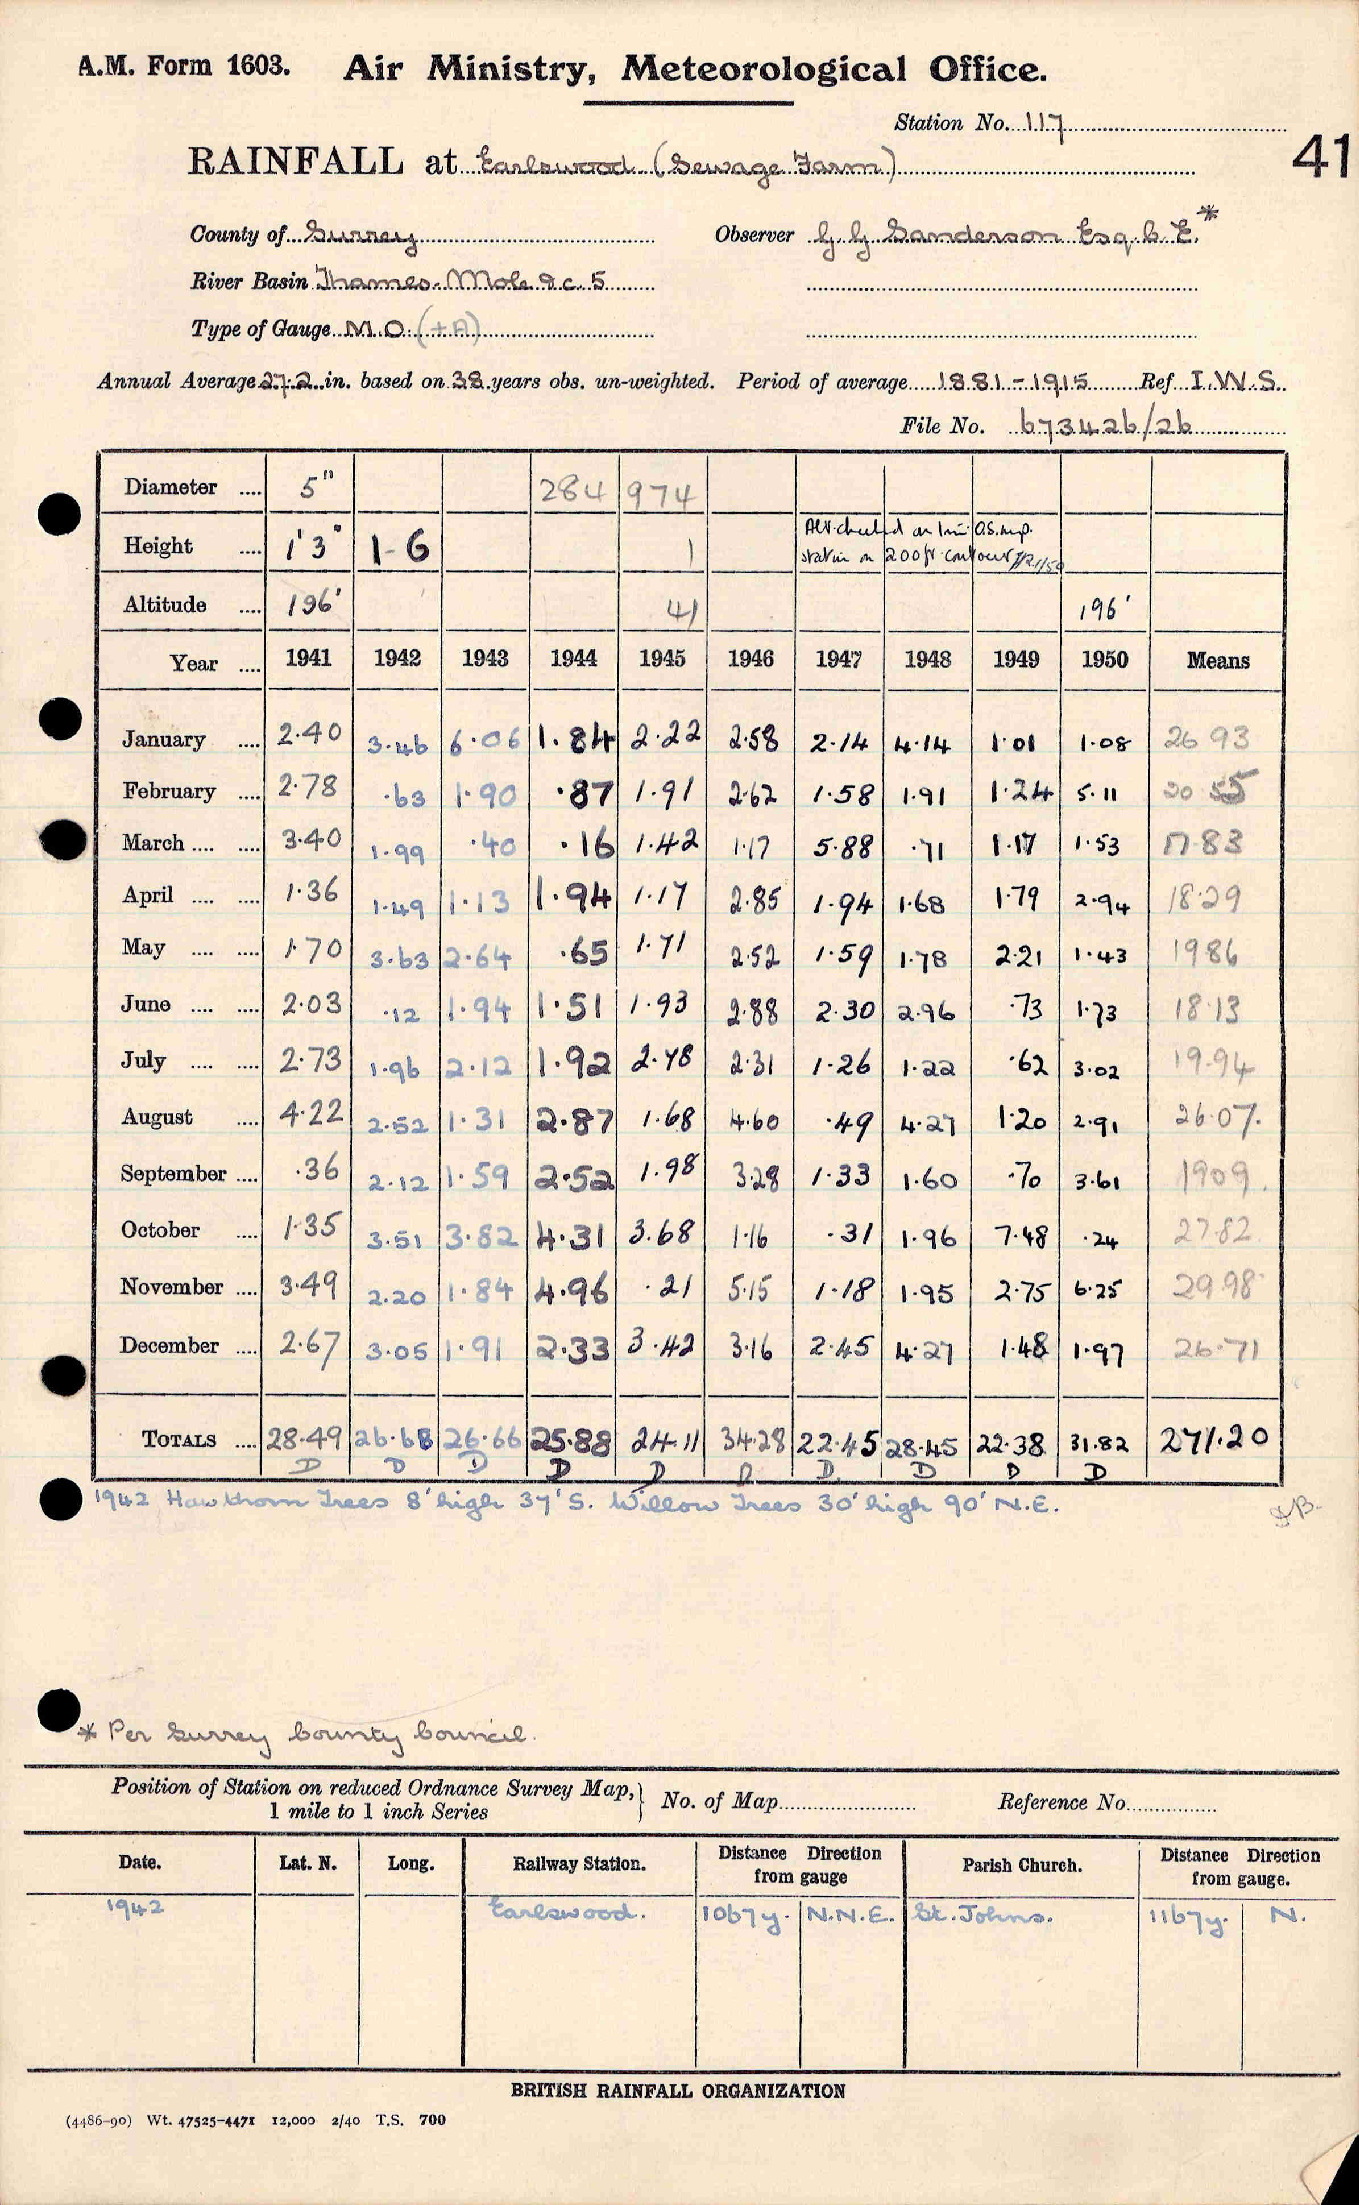 A.M. Form 1603. Air Ministry, Meteorological Office.
Station No. 117
41
RAINFALL at Earlswood (Sewage Farm)
County of Surrey Observer G G Sanderson Esq. C. E.*
River Basin Thames-Mole &c. 5
Type of Gauge M.O. (+A)
Annual Average 27.2 in. based on 38 years obs. un-weighted. Period of average 1881-1915 Ref I.W.S.
File No. 673426/26
Diameter .... 5" 284 974
Height .... 1'3" 1-6 1 on 1 in O.S. map.
station on 200 ft contour
Altitude .... 196' 41 196'
Year .... 1941 1942 1943 1944 1945 1946 1947 1948 1949 1950 Means
January .... 2.40 3.46 6.06 1.84 2.22 2.58 2.14 4.14 1.01 1.08 26 93
February .... 2.78 .63 1.90 .87 1.91 2.62 1.58 1.91 1.24 5.11 20 55
March .... .... 3.40 1.99 .40 .16 1.42 1.17 5.88 .71 1.17 1.53 17.83
April .... .... 1.36 1.49 1.13 1.94 1.17 2.85 1.94 1.68 1.79 2.94 18.29
May .... .... 1.70 3.63 2.64 .65 1.71 2.52 1.59 1.78 2.21 1.43 19 86
June .... .... 2.03 .12 1.94 1.51 1.93 2.88 2.30 2.96 .73 1.73 18.13
July .... .... 2.73 1.96 2.12 1.92 2.78 2.31 1.26 1.22 .62 3.02 19.94
August .... 4.22 2.52 1.31 2.87 1.68 4.60 .49 4.27 1.20 2.91 26.07.
September .... .36 2.12 1.59 2.52 1.98 3.28 1.33 1.60 .70 3.61 19 09.
October .... 1.35 3.51 3.82 4.31 3.68 1.16 .31 1.96 7.48 .24 27.82
November .... 3.49 2.20 1.84 4.96 .21 5.15 1.18 1.95 2.75 6.25 29.98
December .... 2.67 3.05 1.91 2.33 3.42 3.16 2.45 4.27 1.48 1.97 26.71
TOTALS .... 28.49 26.68 26.66 25.88 24.11 34.28 22.45 28.45 22.38 31.82 271.20
D D D D D D D D D D
1942 Hawthorn Trees 8' high 37' S. Willow Trees 30' high 90' N.E.
* Per Surrey County Council.
Position of Station on reduced Ordnance Survey Map,
1 mile to 1 inch Series
No. of Map Reference No.
Date. Lat. N. Long. Railway Station. Distance from gauge Direction Parish Church. Distance from gauge. Direction
1942 Earlswood. 1067y. N.N.E. St. Johns. 1167y. N.
BRITISH RAINFALL ORGANIZATION
(4486-90) Wt. 47525-4471 12,000 2/40 T.S. 700